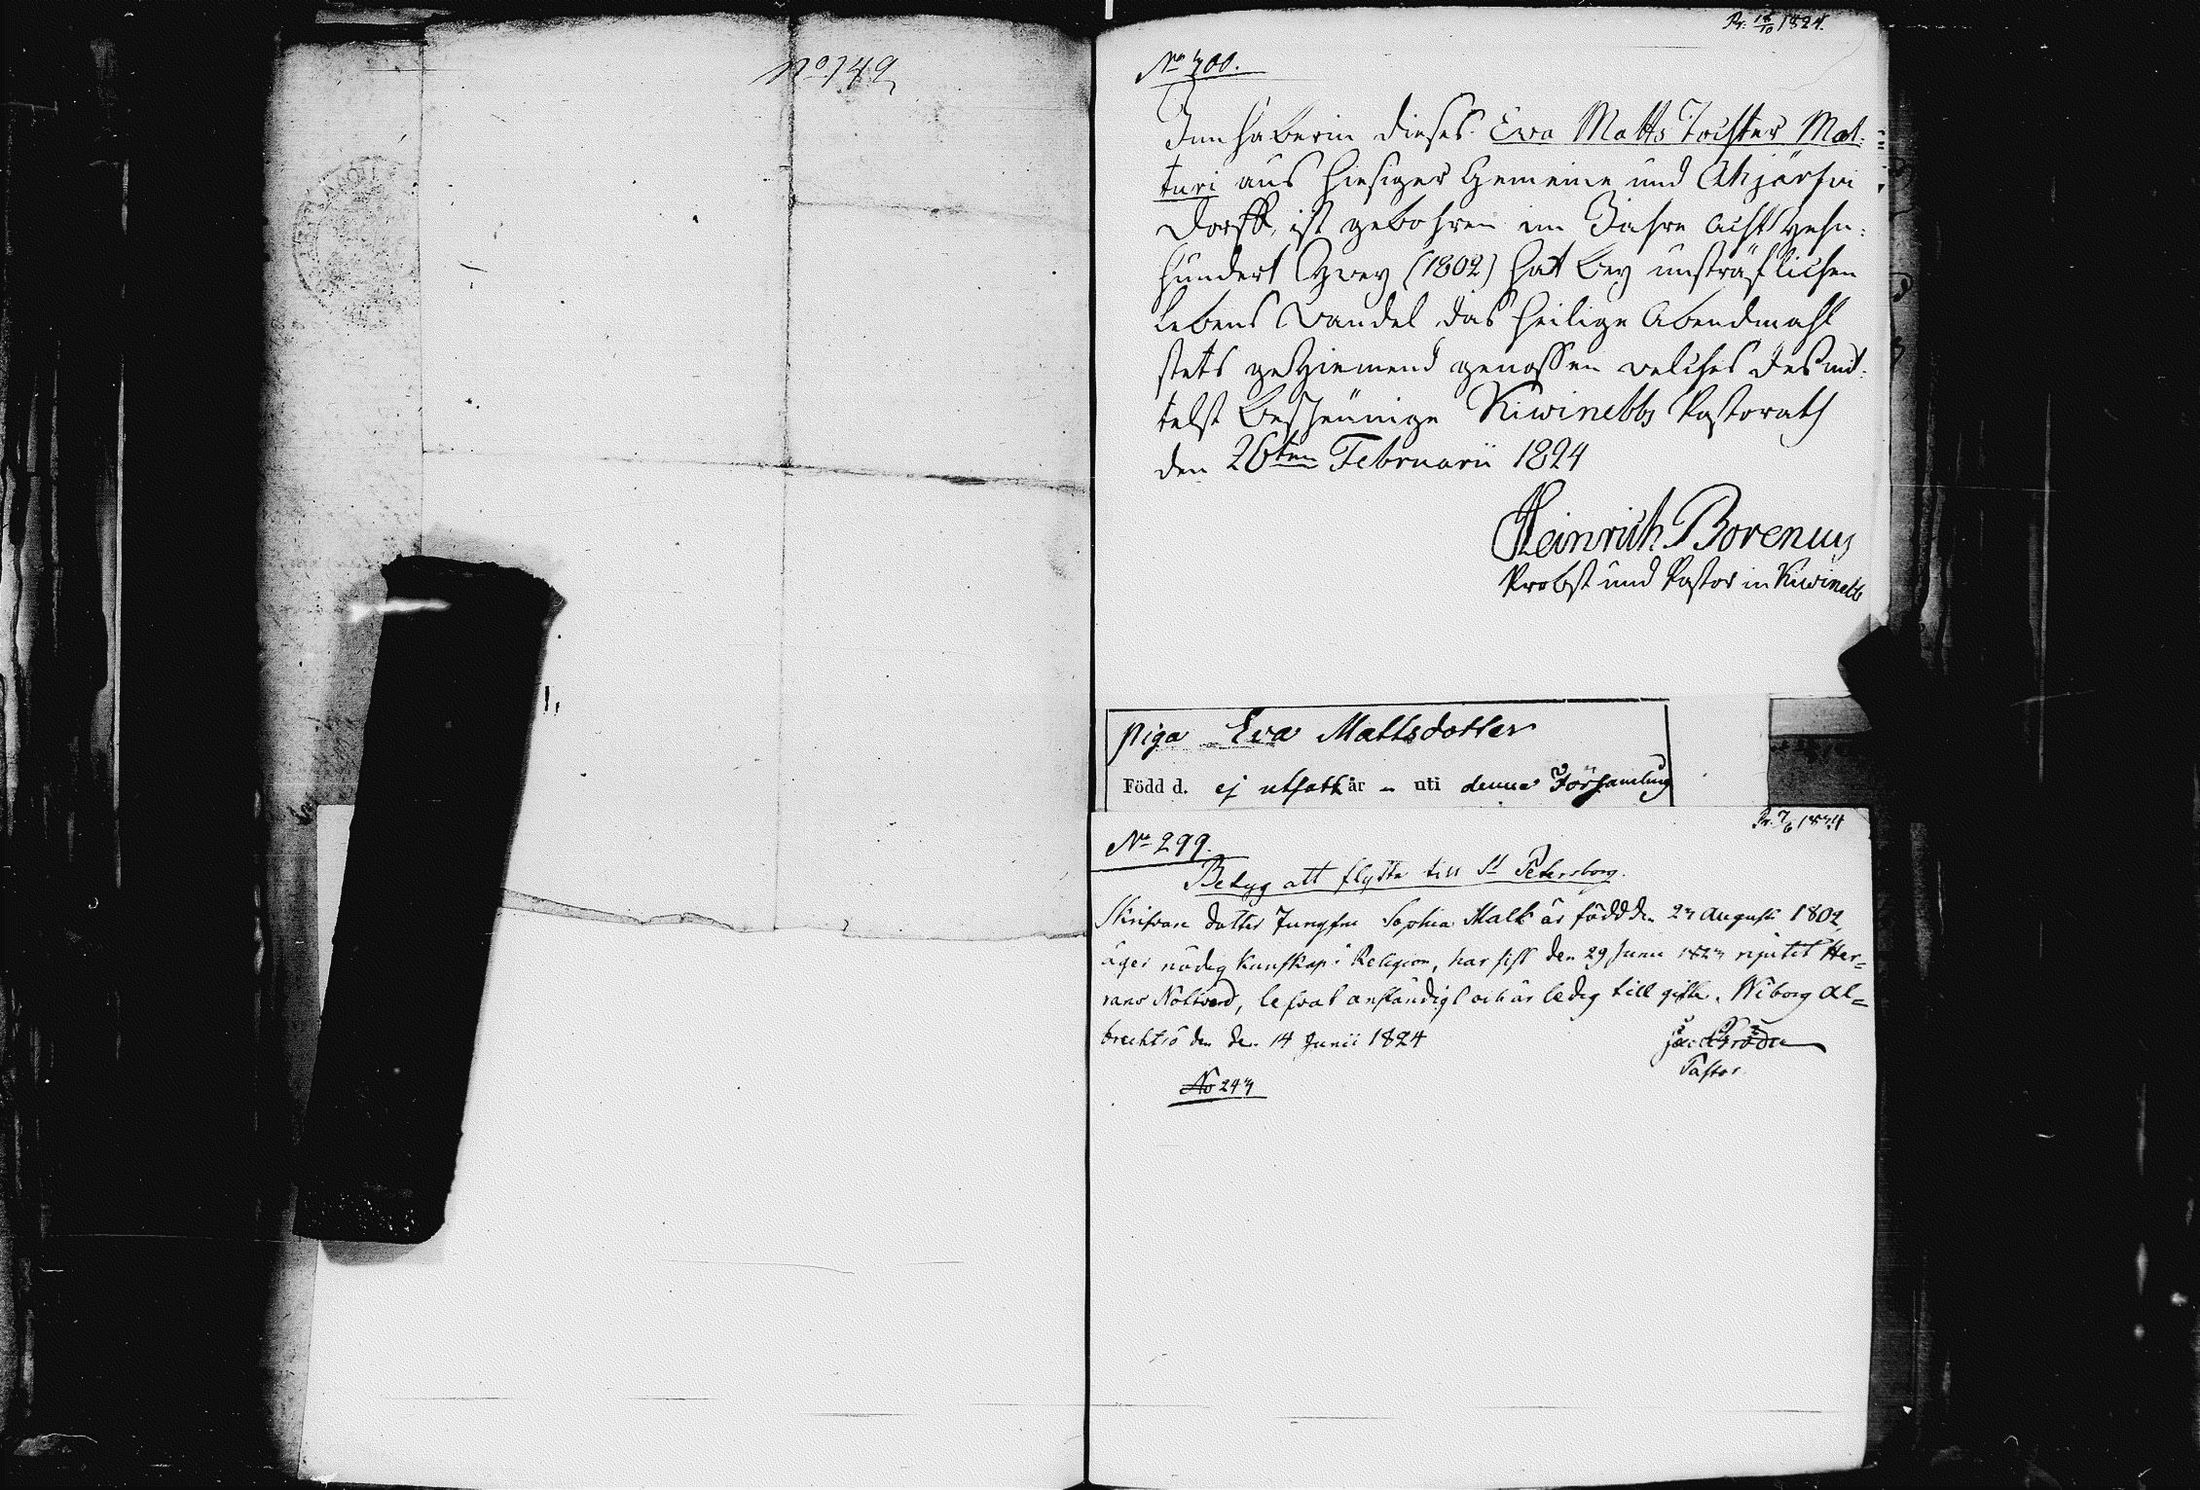 No 149
Pr. 12/10 1824.
No 300.
Innhaberin dieses Ewa Matts Tochter Mat:
turi aus hiesiger Gemeine und Ahjärfwi
Dorff, ist gebohren im Jahre Achtzehn:
hundert Zwey (1802) hat bey unsträflichen
Lebens Wandel das heilige Abendmahl
stets geziemend genossen welches desmit:
telst bescheinige Kiwinebbs Pastorath
den 26ten Februarii 1824
Heinrich Borenius
Probst und Pastor in Kiwinebb
Piga Eva Mattsdotter
Född d. ej utsatt år – uti denna Församling
Pr. 7/6 1824
No 299.
Betyg att flytta till St Petersborg.
Skrifvare dotter Jungfru Sophia Malk är född den 23 Augusti 1802,
äger nödig kunskap i Religion, har sist den 29 Junii 1823 njutit Her=
rans Nattvard, lefvat anständigt och är ledig till gifte. Wiborg Al=
brechtsö den 14 Junii 1824
Pastor.
No 243